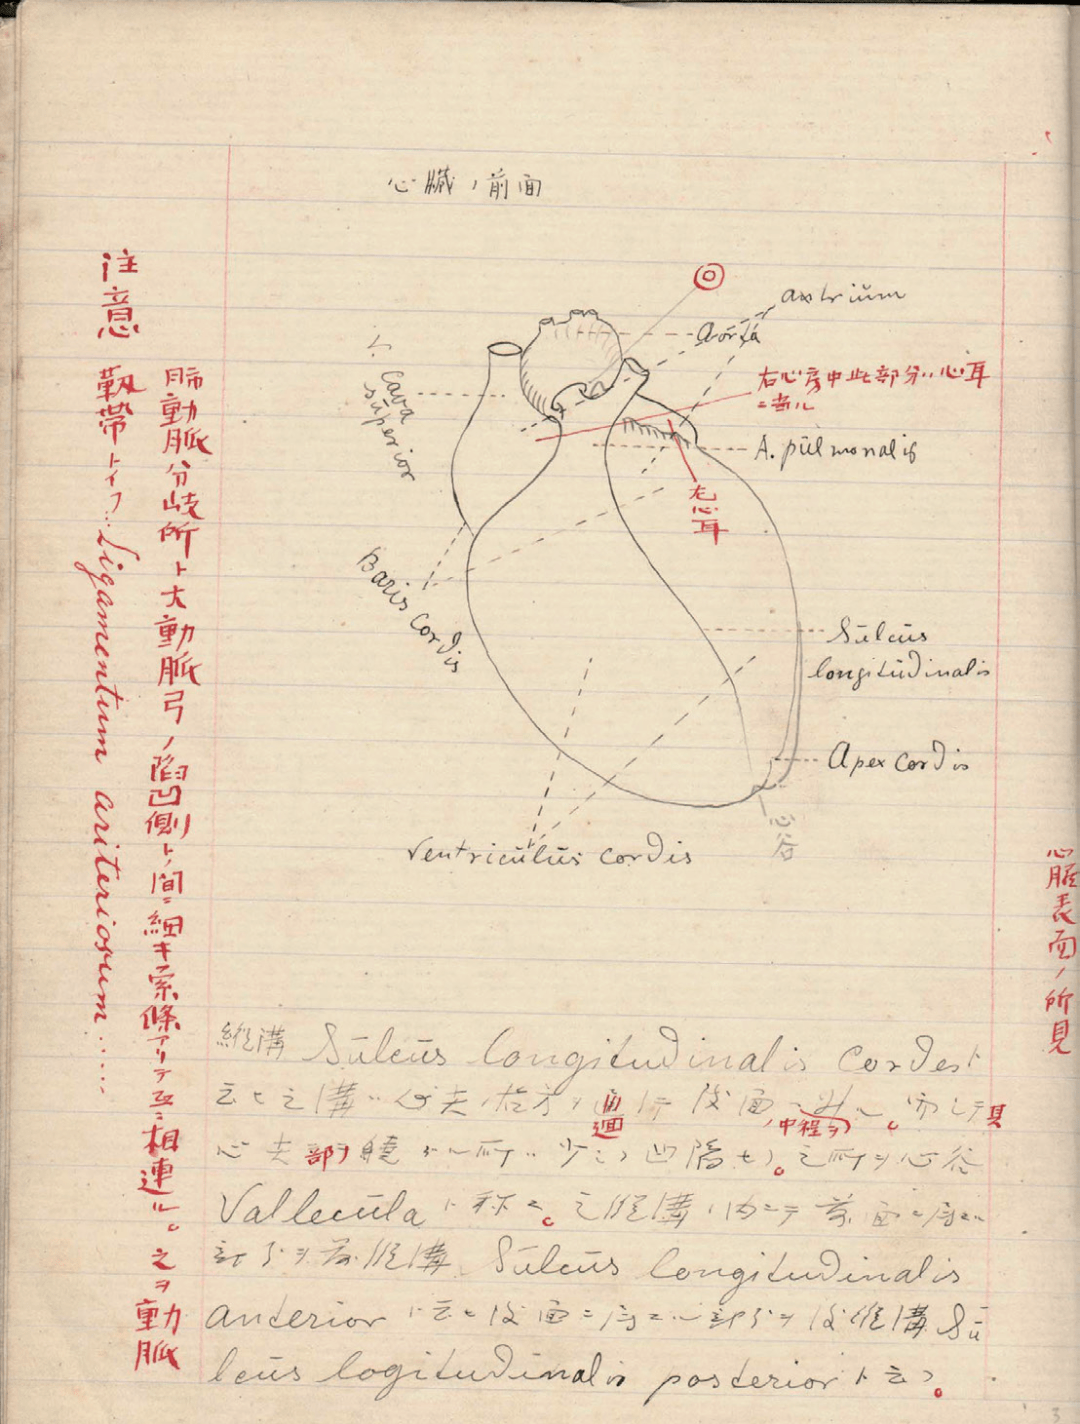 心臓ノ前面
axtrium
aorta
V. Cava
superior
右心房中此部分ハ心耳
ニ当ル
A. pūlmonalis
左心耳
Baris Cordis
Sūlcūs
longitūdinalis
Apex Cordis
心谷
Ventricūlūs cordis
注意
肺動脈分岐所ト大動脈弓ノ陥凹側トノ間ニ細キ索條アリテ互ニ相連ル。之ヲ動脈
靱帯トイフ‥Ligamentum ariteriosum……
心臓表面ノ所見
縦溝 Sūlcūs longitudinalis Cordest
云ヒ之溝ハ心尖ノ右方ヲ通
中程ヲ
心尖部ヲ繞
少シク凹陥セリ。之所ヲ心谷
Vallecūla ト称ス。之縦溝ノ内ニテ前面ニ存スル
部分ヲ前縦溝 Sūlcūs longitudinalis
anterior ト云ヒ後面ニ存スル部分ヲ後縦溝 Sū
lcūs logitūdinalis posterior ト云フ。
3